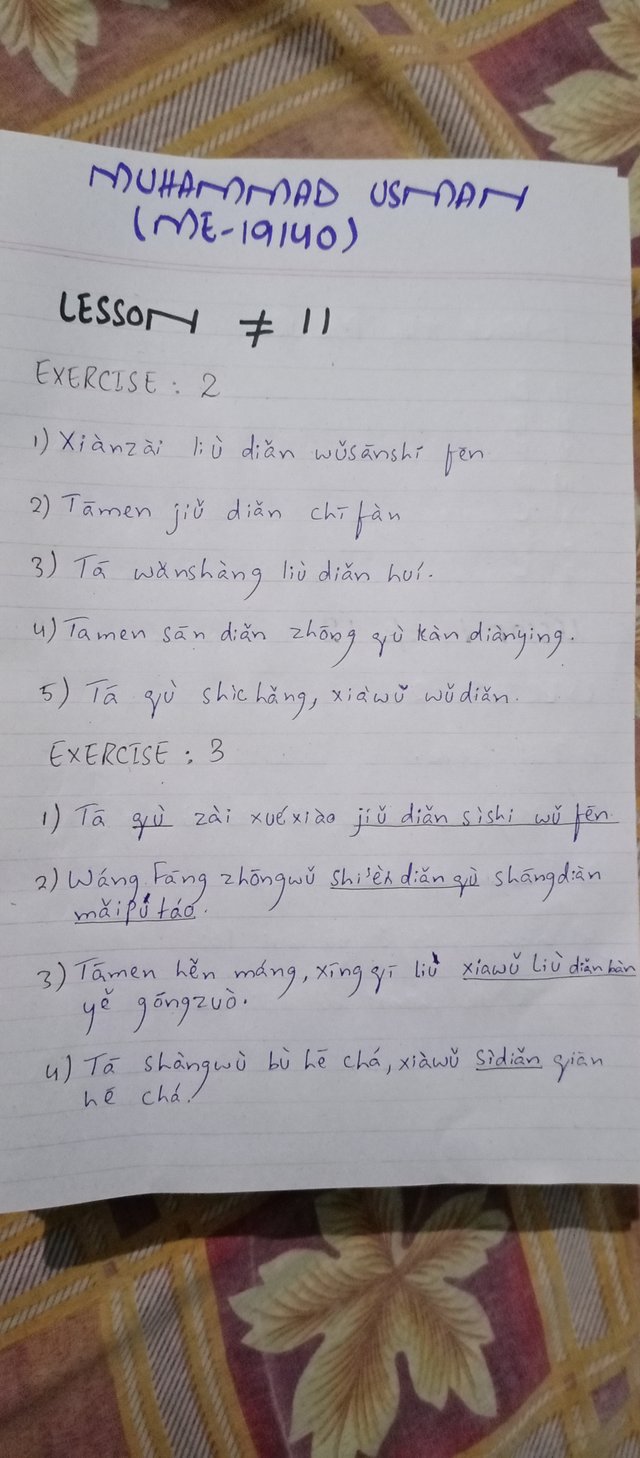 MUHAMMAD USMAN
(ME-19140)
LESSON ≠ 11
EXERCISE : 2
1) Xiànzài liù diǎn wǔsānshí fēn
2) Tāmen jiǔ diǎn chī fàn
3) Tā wǎnshàng liù diǎn huí.
4) Tamen sān diǎn zhōng qù kàn diànying.
5) Tā qù shìchǎng, xiàwǔ wǔdiǎn.
EXERCISE : 3
1) Tā qù zài xuéxiào jiǔ diǎn sìshi wǔ fēn.
2) Wáng Fāng zhōngwǔ shí'èr diǎn qù shāngdiàn
mǎi pútáo.
3) Tāmen hěn máng, xīngqī liù xiawǔ liù diǎn bàn
yě gōngzuò.
4) Tā shàngwù bù hē chá, xiàwǔ sìdiǎn qián
hē chá.